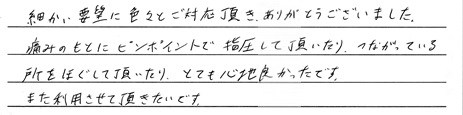 細かい要望に色々とご対応頂き、ありがとうございました。
痛みのもとにピンポイントで指圧して頂いたり、つながっている
所をほぐして頂いたり、とても心地良かったです。
また利用させて頂きたいです。